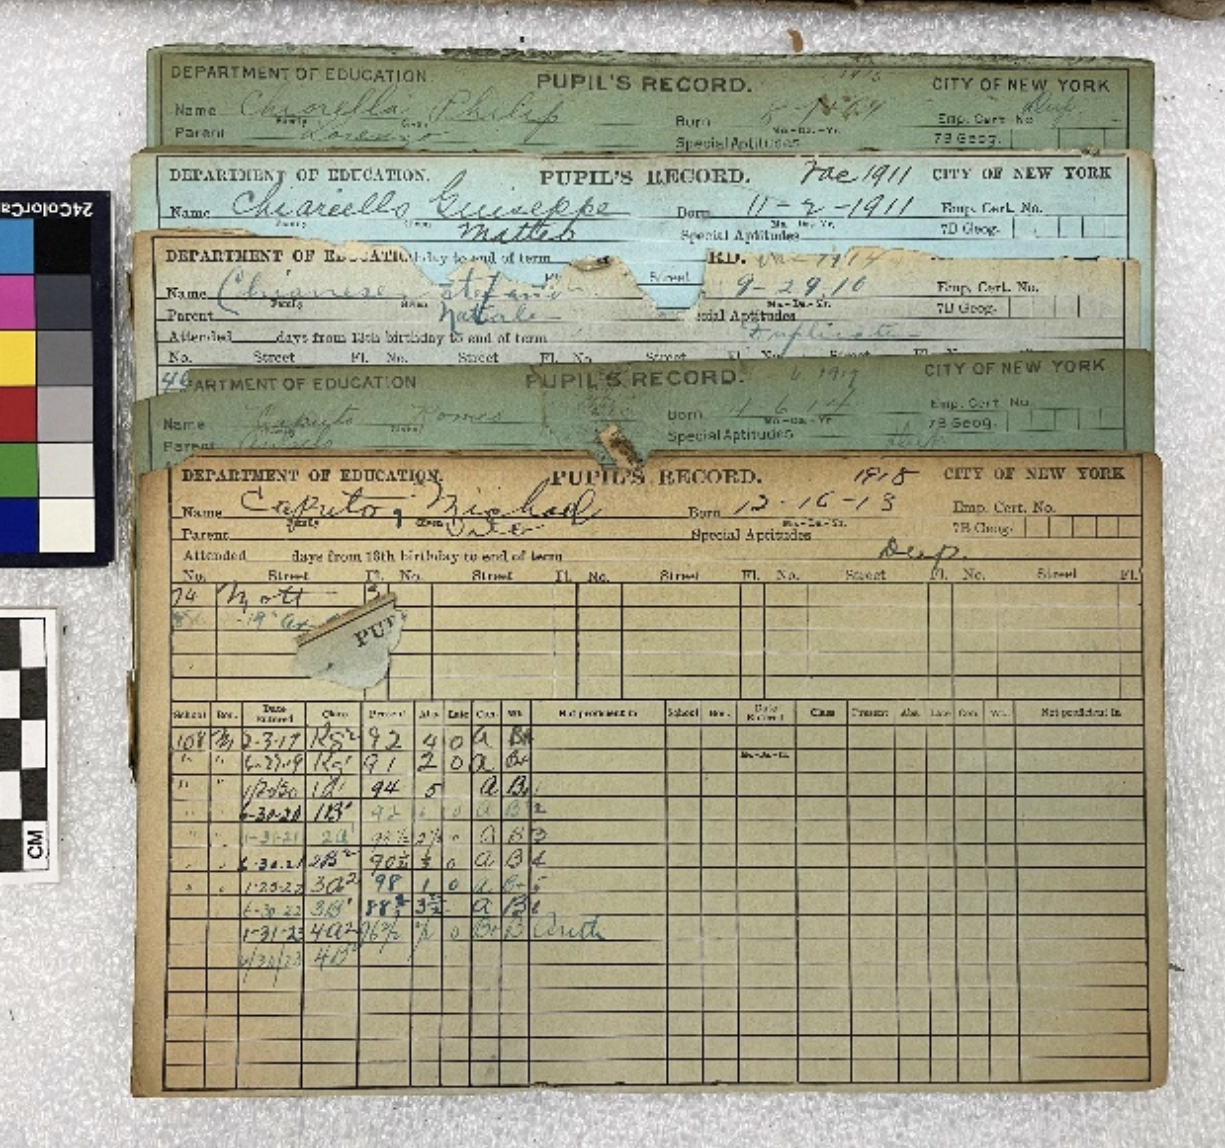 DEPARTMENT OF EDUCATION. PUPIL'S RECORD. CITY OF NEW YORK
Name Chiarella Philip Born Emp. Cert. No.
Family Given Mo.-Da.-Yr.
Parent Lorenzo Special Aptitudes 7B Geog.
DEPARTMENT OF EDUCATION. PUPIL'S RECORD. Vac 1911 CITY OF NEW YORK
Name Chiarello Guiseppe Born 11-2-1911 Emp. Cert. No.
Family Given Mo. Da. Yr.
Matteo Special Aptitudes 7B Geog.
DEPARTMENT OF EDUCATIO day to end of term RD.
Fl. Street
Name Chianese Stefano 9-29-10 Emp. Cert. No.
Family Given Mo.-Da.-Yr.
Parent Natale cial Aptitudes 7B Geog.
Attended days from 13th birthday to end of term Duplicate
No. Street Fl. No. Street Fl. No. Street Fl. No. Street Fl. No.
ARTMENT OF EDUCATION PUPIL'S RECORD. CITY OF NEW YORK
Name Caputo Romeo Born 4 6 14 Emp. Cert. No.
Given Mo.-Da.-Yr.
Parent Special Aptitudes 7B Geog.
DEPARTMENT OF EDUCATION. PUPIL'S RECORD. 1918 CITY OF NEW YORK
Name Caputo, Michael Born 12-16-13 Emp. Cert. No.
Family Given Mo.-Da.-Yr.
Parent Vito Special Aptitudes 7B Geog.
Attended days from 13th birthday to end of term Dup.
No. Street Fl. No. Street Fl. No. Street Fl. No. Street Fl. No. Street Fl.
74 Mott
PUP
School Bor. Date Entered Class Present Abs. Late Con. Wk. Not proficient in School Bor. Date Entered Class Present Abs. Late Con. Wk. Not proficient in
Mo.-Da.-Yr.
108 M 2-3-19 Kg2 92 4 0 A B+
" " 6-27-19 Kg1 91 2 0 A B+
" " 1/30/20 1A1 94 5 A B 1
6-30-20 1B1 92 0 A B 2
1-31-21 2A1 A B 3
6-30-21 2B2 0 A B 4
1-25-22 3A2 98 1 0 A B+ 5
6-30-22 3B1 A B 6
1-31-23 4A2 0 B+ B Arith
6/30/23 4B2
24ColorCa
CM